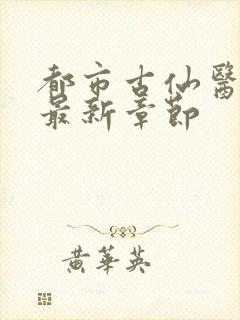 都市古仙醫
最新章節
黃華英